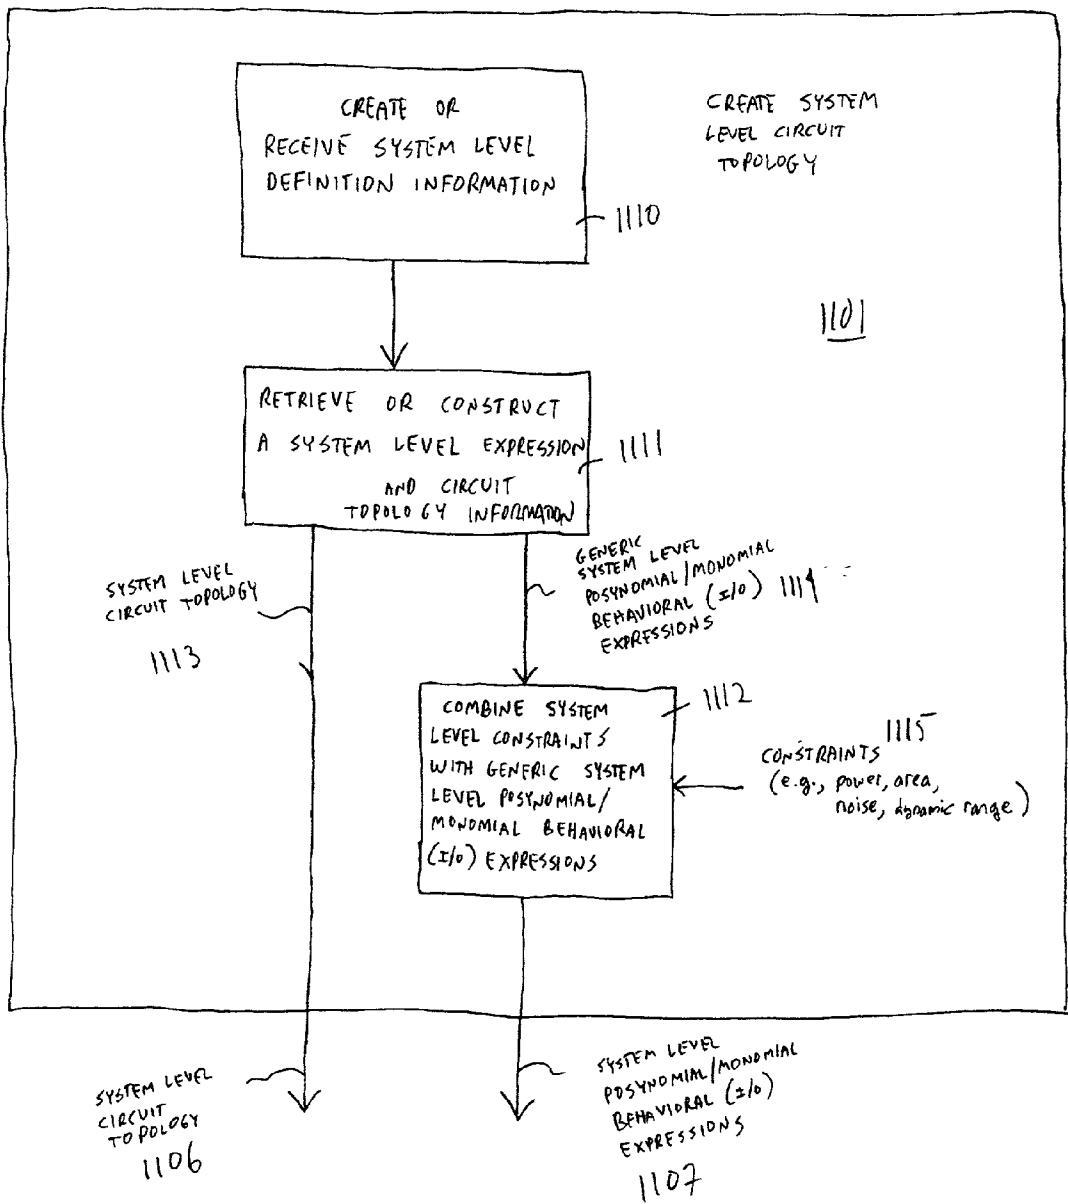 CREATE OR
RECEIVE SYSTEM LEVEL
DEFINITION INFORMATION
1110
CREATE SYSTEM
LEVEL CIRCUIT
TOPOLOGY
1101
RETRIEVE OR CONSTRUCT
A SYSTEM LEVEL EXPRESSION
AND CIRCUIT
TOPOLOGY INFORMATION
1111
SYSTEM LEVEL
CIRCUIT TOPOLOGY
1113
GENERIC
SYSTEM LEVEL
POSYNOMIAL/MONOMIAL
BEHAVIORAL (I/O) 1114
EXPRESSIONS
COMBINE SYSTEM
LEVEL CONSTRAINTS
WITH GENERIC SYSTEM
LEVEL POSYNOMIAL/
MONOMIAL BEHAVIORAL
(I/O) EXPRESSIONS
1112
1115
CONSTRAINTS
(e.g., power, area,
noise, dynamic range)
SYSTEM LEVEL
CIRCUIT
TOPOLOGY
1106
SYSTEM LEVEL
POSYNOMIAL/MONOMIAL
BEHAVIORAL (I/O)
EXPRESSIONS
1107